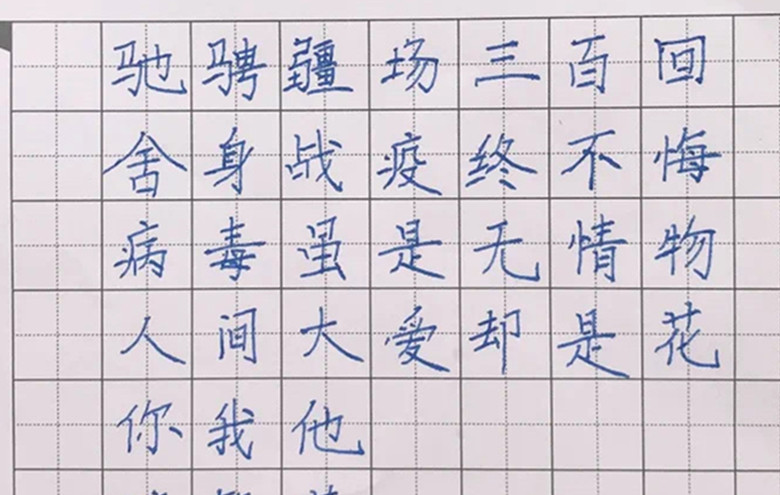 驰骋疆场三百回
舍身战疫终不悔
病毒虽是无情物
人间大爱却是花
你我他